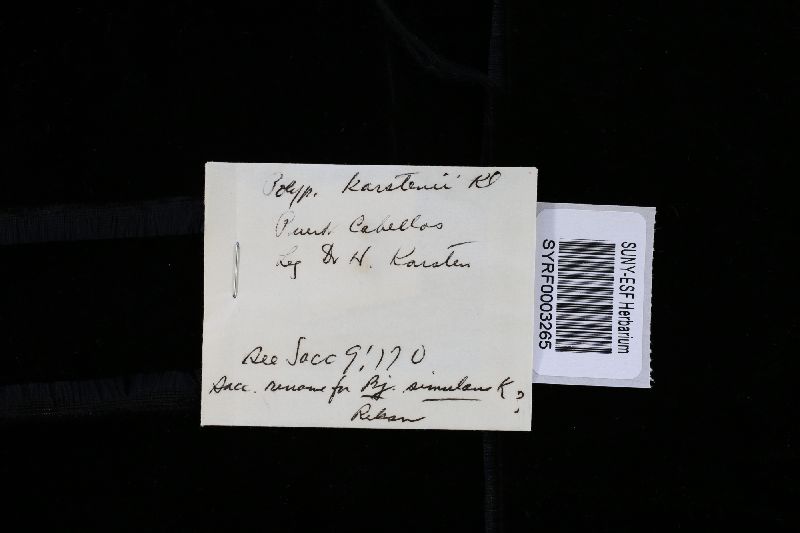 Polyp. Karstenii Kl
Puert. Cabellos
Leg Dr H. Karsten
See Sacc 9:170
Sacc. rename for Bj. simulans K?
SUNY-ESF Herbarium
SYRF0003265